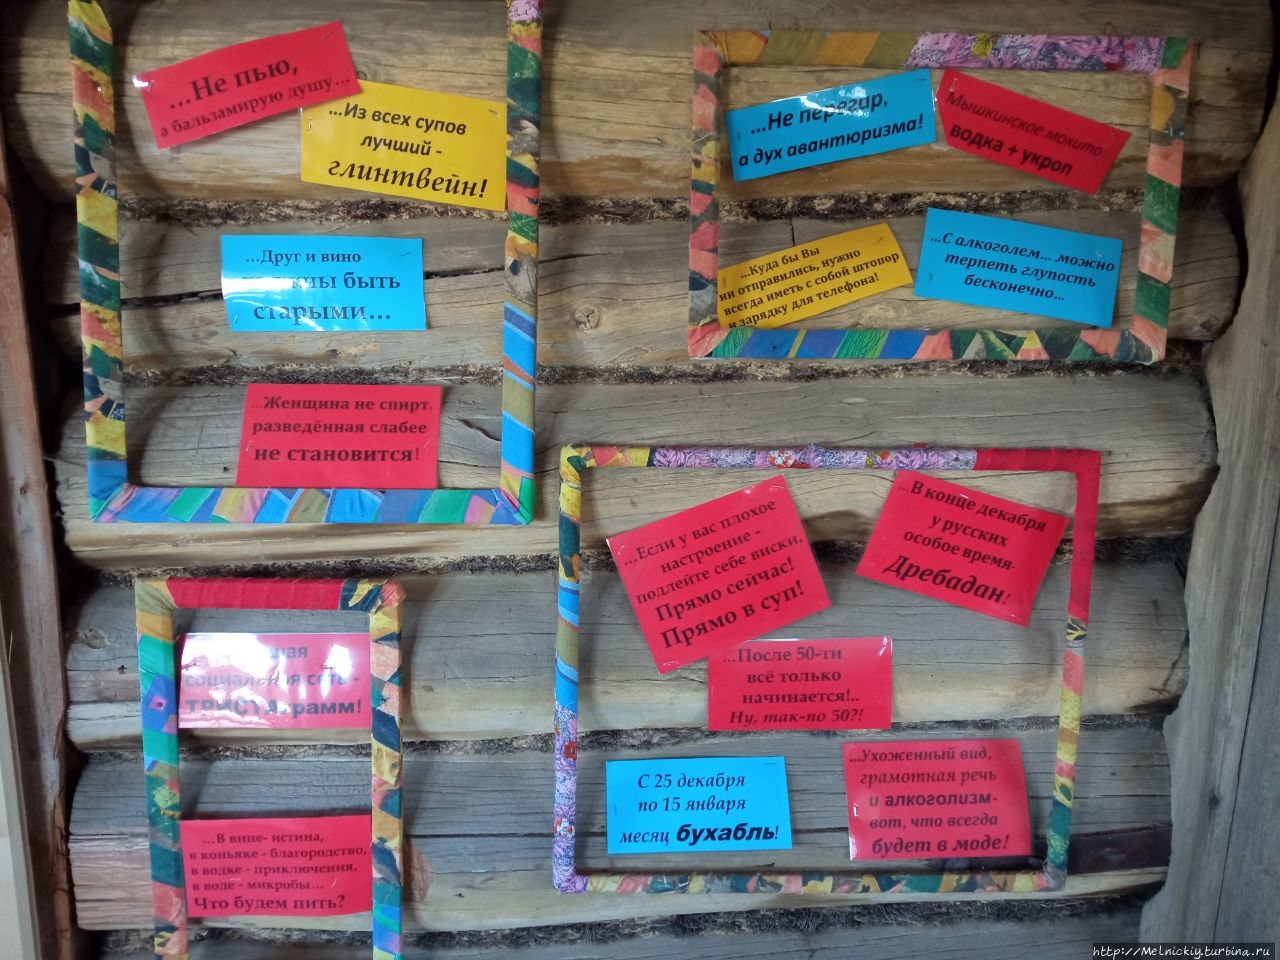 ...Не пью,
а бальзамирую душу...
...Из всех супов
лучший -
глинтвейн!
...Друг и вино
быть
старыми...
...Женщина не спирт.
разведённая слабее
не становится!
...Не перегар,
а дух авантюризма!
Мышкинское мохито:
водка + укроп
...Куда бы Вы
ни отправились, нужно
всегда иметь с собой штопор
и зарядку для телефона!
...С алкоголем... можно
терпеть глупость
бесконечно...
...Если у вас плохое
настроение -
подлейте себе виски.
Прямо сейчас!
Прямо в суп!
...В конце декабря
у русских
особое время-
Дребадан!
...После 50-ти
всё только
начинается!..
Ну, так-по 50?!
С 25 декабря
по 15 января
месяц бухабль!
...Ухоженный вид,
грамотная речь
и алкоголизм-
вот, что всегда
будет в моде!
социальная сеть -
ТРИСТАграмм!
...В вине- истина,
в коньяке - благородство,
в водке - приключения,
в воде - микробы...
Что будем пить?
http://Melnickiy.turbina.ru